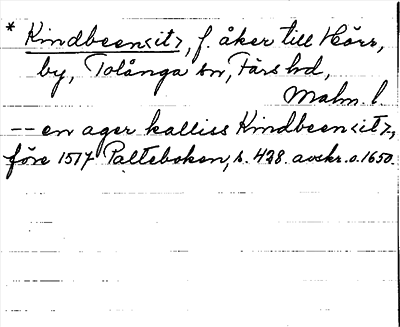 * Kindbeen<it>, f. åker till Hörr,
by, Tolånga sn, Färs hd,
Malm. l.
-- en ager kalliss Kindbeen<it>,
före 1517 Palteboken, s. 428. avskr. o. 1650.